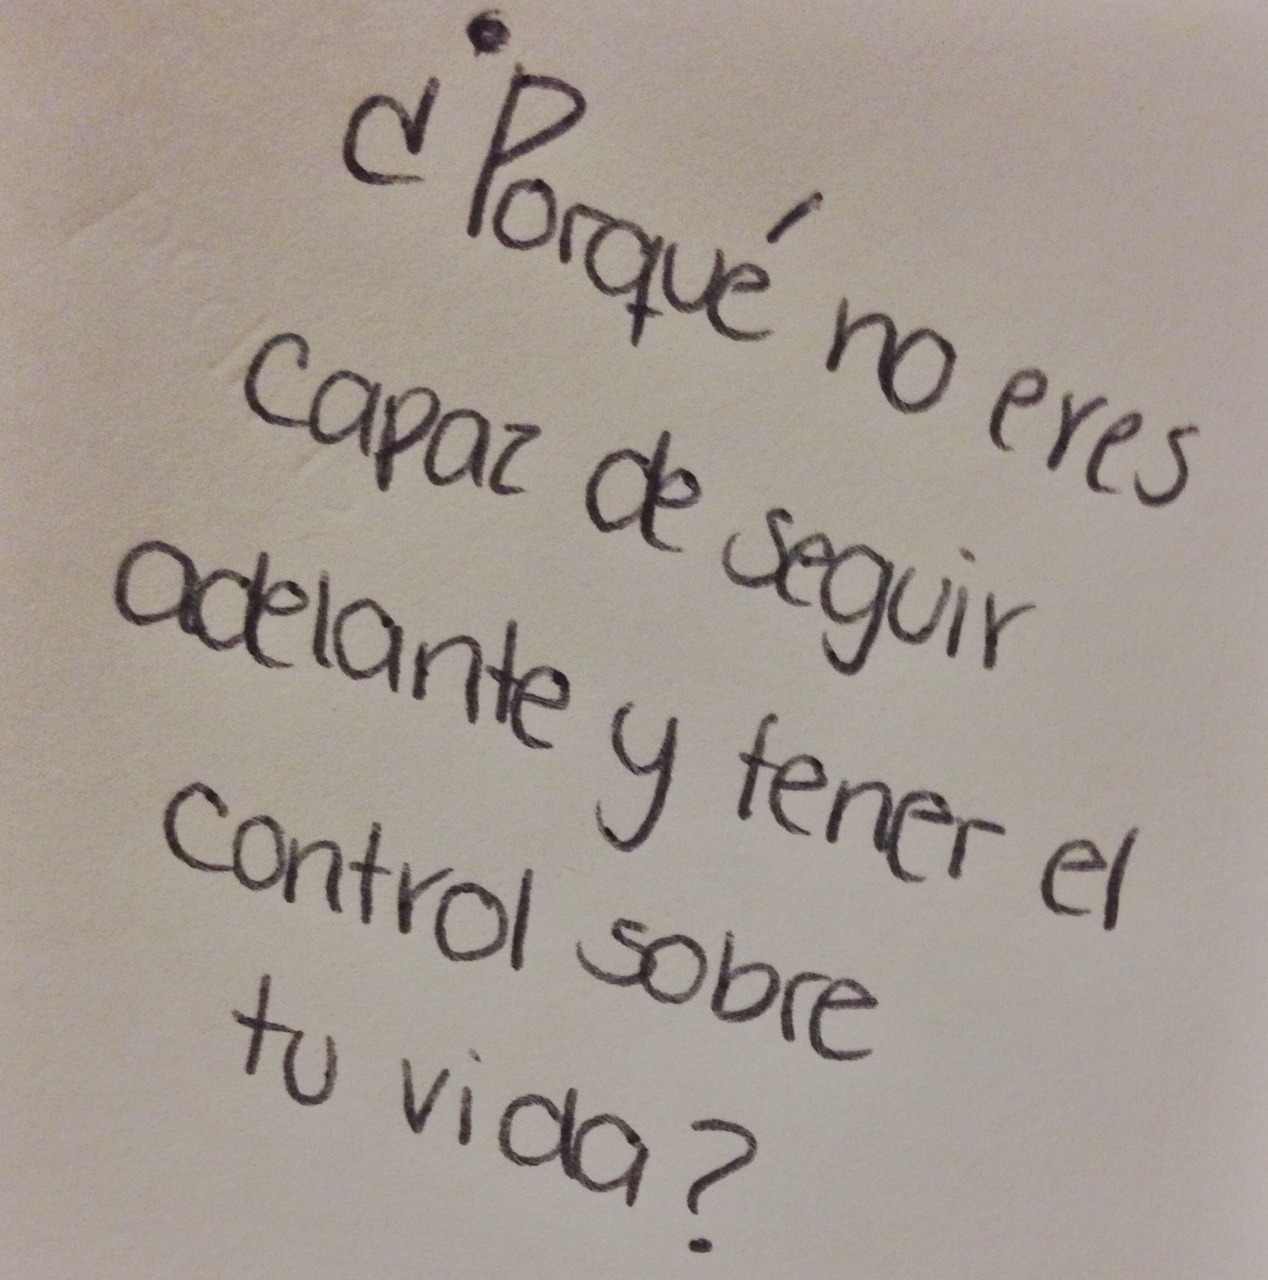 ¿Porqué no eres
capaz de seguir
adelante y tener el
control sobre
tu vida?